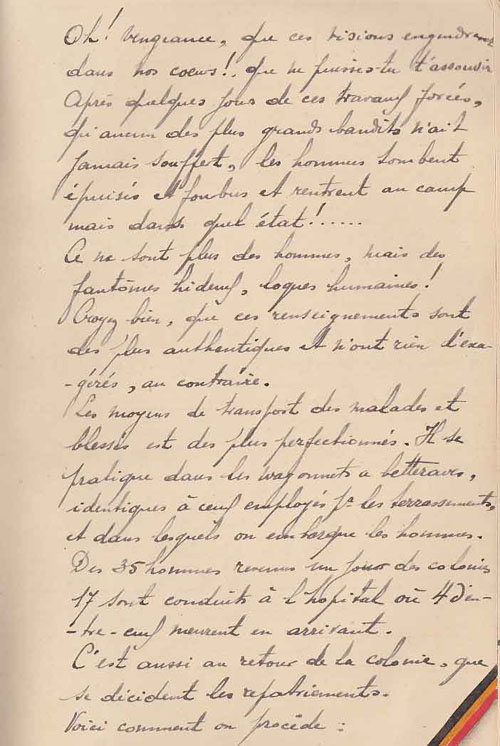 Oh! Vengeance, que ces visions engendrent
dans nos coeurs! que ne puisses-tu t'assouvir
Après quelques jours de ces travaux forcés,
qu'aucun des plus grands bandits n'ait
jamais souffert, les hommes tombent
épuisés et fourbus et rentrent au camp
mais dans quel état!......
Ce ne sont plus des hommes, mais des
fantômes hideux, loques humaines!
Croyez bien, que ces renseignements sont
des plus authentiques et n'ont rien d'exa-
-gérés, au contraire.
Les moyens de transport des malades et
blessés est des plus perfectionnés. Il se
pratique dans les wagonnets a betteraves,
identiques à ceux employés pr les terrassements,
et dans lesquels on embarque les hommes.
Des 35 hommes revenus un jour des colonies
17 sont conduits à l'hopital où 4 d'en-
-tre-eux meurent en arrivant.
C'est aussi au retour de la colonie, que
se décident les rapatriements.
Voici comment on procède :